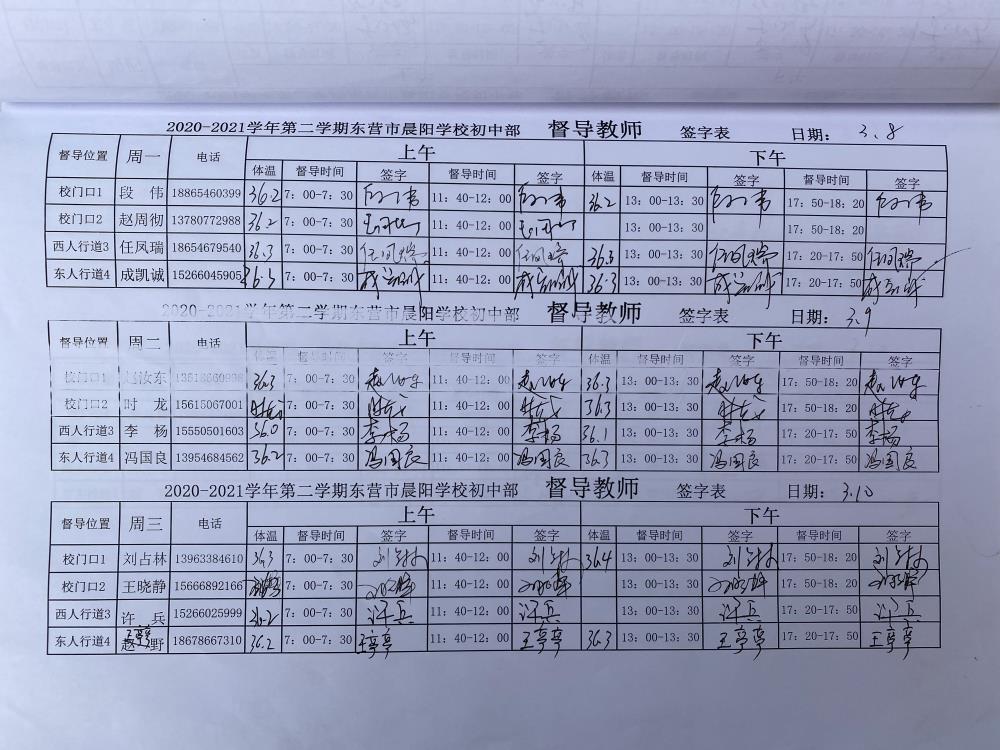 2020-2021学年第二学期东营市晨阳学校初中部 督导教师 签字表 日期: 3.8
督导位置 周一 电话 上午 下午
体温 督导时间 签字 督导时间 签字 体温 督导时间 签字 督导时间 签字
校门口1 段 伟 18865460399 36.2 7:00-7:30 11:40-12:00 36.2 13:00-13:30 17:50-18:20
校门口2 赵周彻 13780772988 36.2 7:00-7:30 11:40-12:00 13:00-13:30 17:50-18:20
西人行道3 任凤瑞 18654679540 36.3 7:00-7:30 任凤瑞 11:40-12:00 任凤瑞 36.3 13:00-13:30 任凤瑞 17:20-17:50 任凤瑞
东人行道4 成凯诚 15266045905 36.3 7:00-7:30 成凯诚 11:40-12:00 成凯诚 36.3 13:00-13:30 成凯诚 17:20-17:50 成凯诚
2020-2021学年第二学期东营市晨阳学校初中部 督导教师 签字表 日期: 3.9
督导位置 周二 电话 上午 下午
体温 督导时间 签字 督导时间 签字 体温 督导时间 签字 督导时间 签字
校门口1 赵汝东 36.3 7:00-7:30 赵汝东 11:40-12:00 赵汝东 36.3 13:00-13:30 赵汝东 17:50-18:20 赵汝东
校门口2 时 龙 15615067001 7:00-7:30 时龙 11:40-12:00 时龙 36.3 13:00-13:30 时龙 17:50-18:20 时龙
西人行道3 李 杨 15550501603 36.0 7:00-7:30 李杨 11:40-12:00 李杨 36.1 13:00-13:30 李杨 17:20-17:50 李杨
东人行道4 冯国良 13954684562 36.2 7:00-7:30 冯国良 11:40-12:00 冯国良 36.3 13:00-13:30 冯国良 17:20-17:50 冯国良
2020-2021学年第二学期东营市晨阳学校初中部 督导教师 签字表 日期: 3.10
督导位置 周三 电话 上午 下午
体温 督导时间 签字 督导时间 签字 体温 督导时间 签字 督导时间 签字
校门口1 刘占林 13963384610 36.3 7:00-7:30 刘占林 11:40-12:00 刘占林 36.4 13:00-13:30 刘占林 17:50-18:20 刘占林
校门口2 王晓静 15666892166 7:00-7:30 11:40-12:00 13:00-13:30 17:50-18:20
西人行道3 许 兵 15266025999 36.2 7:00-7:30 许兵 11:40-12:00 许兵 13:00-13:30 许兵 17:20-17:50 许兵
东人行道4 王亭亭 18678667310 36.2 7:00-7:30 王亭亭 11:40-12:00 王亭亭 36.3 13:00-13:30 王亭亭 17:20-17:50 王亭亭